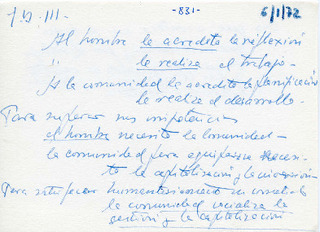 -831-
6/1/72
Al hombre la acredita la reflexión
" le realiza el trabajo -
A la comunidad la acredita la planificación
le realiza el desarrollo -
Para superar sus impotencias
el hombre necesita la comunidad -
la comunidad para equiparse necesi-
ta la capitalización y la inversión -
Para satisfacer
la comunidad socializa la
gestión y la capitalización